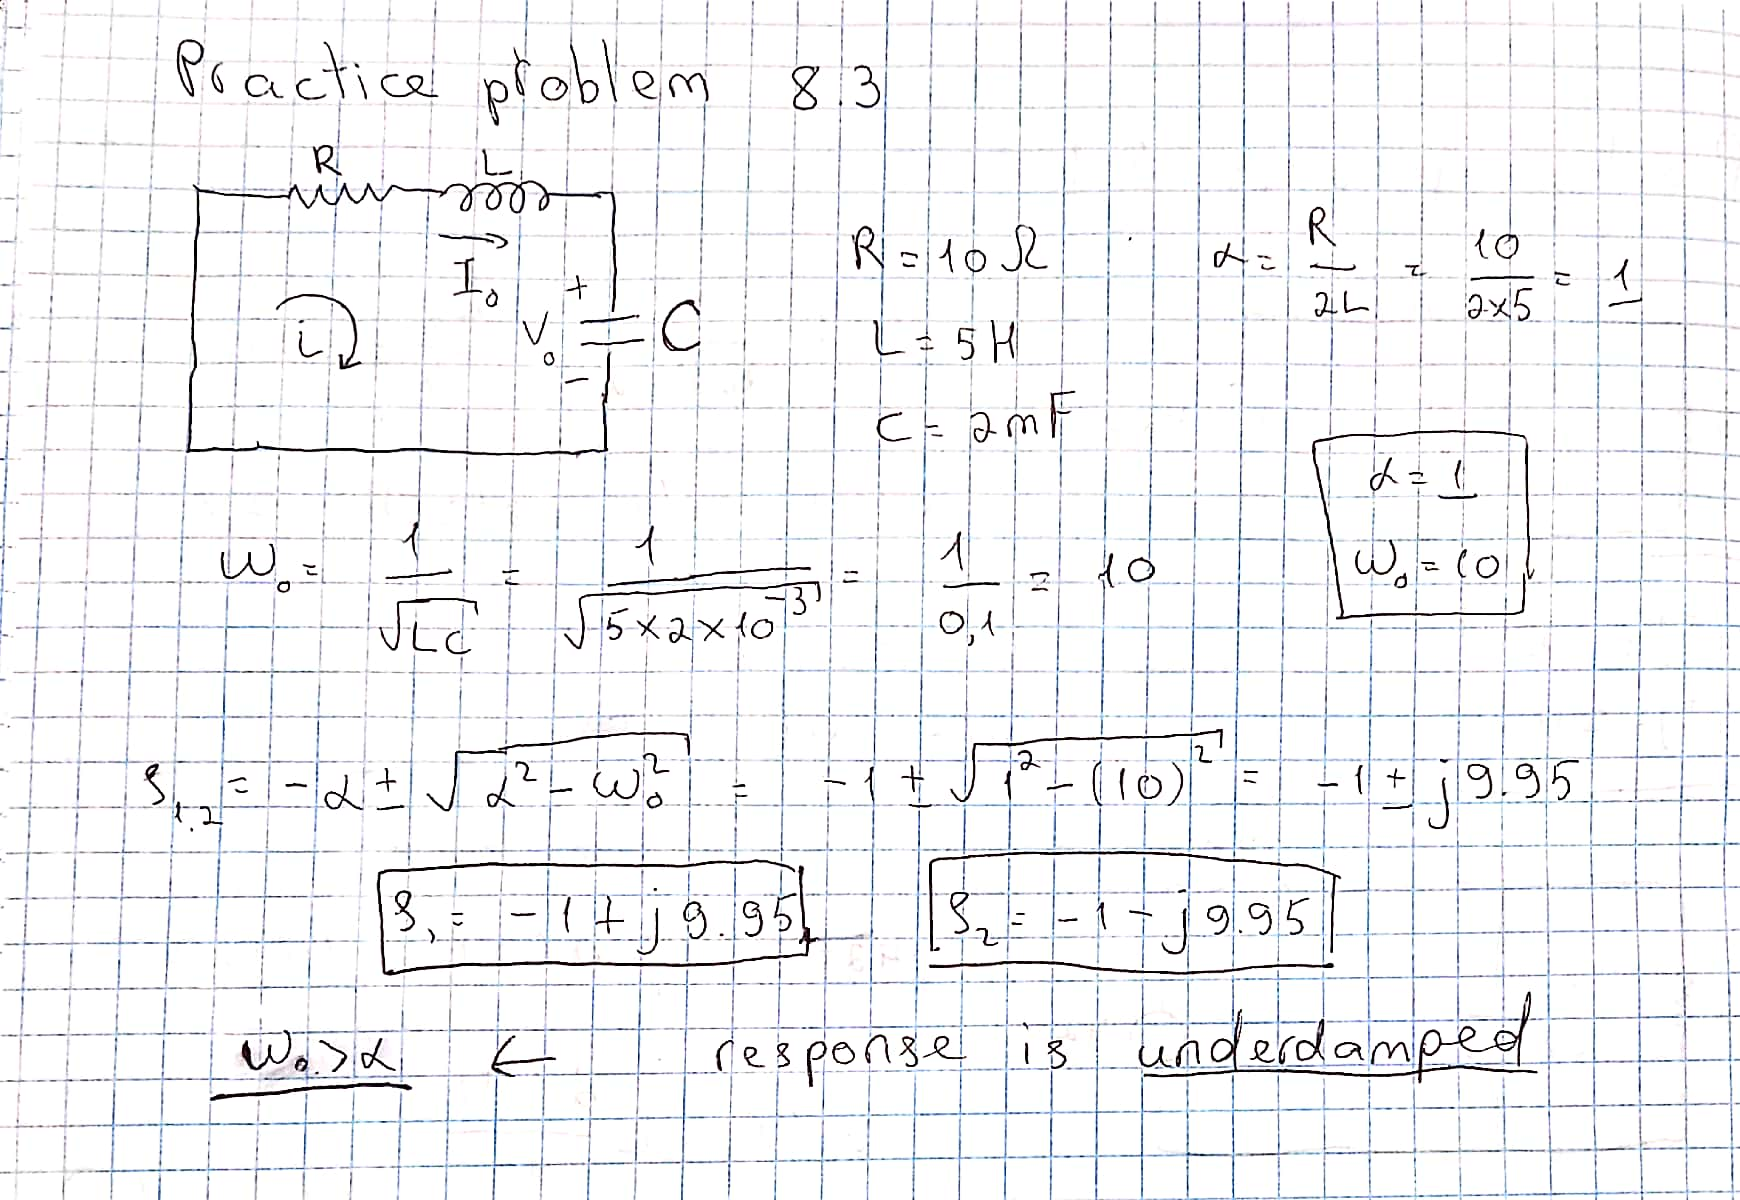 Practice problem 8.3
R L
I₀ +
i V₀ C
−
R = 10 Ω
L = 5 H
C = 2 mF
α = R/2L = 10/2x5 = 1
α = 1
ω₀ = 10
ω₀ = 1/√LC = 1/√5x2x10⁻³ = 1/0,1 = 10
S₁.₂ = -α ± √α² - ω₀² = -1 ± √1² - (10)² = -1 ± j9.95
S₁ = -1 + j9.95 S₂ = -1 - j9.95
ω₀ > α ← response is underdamped